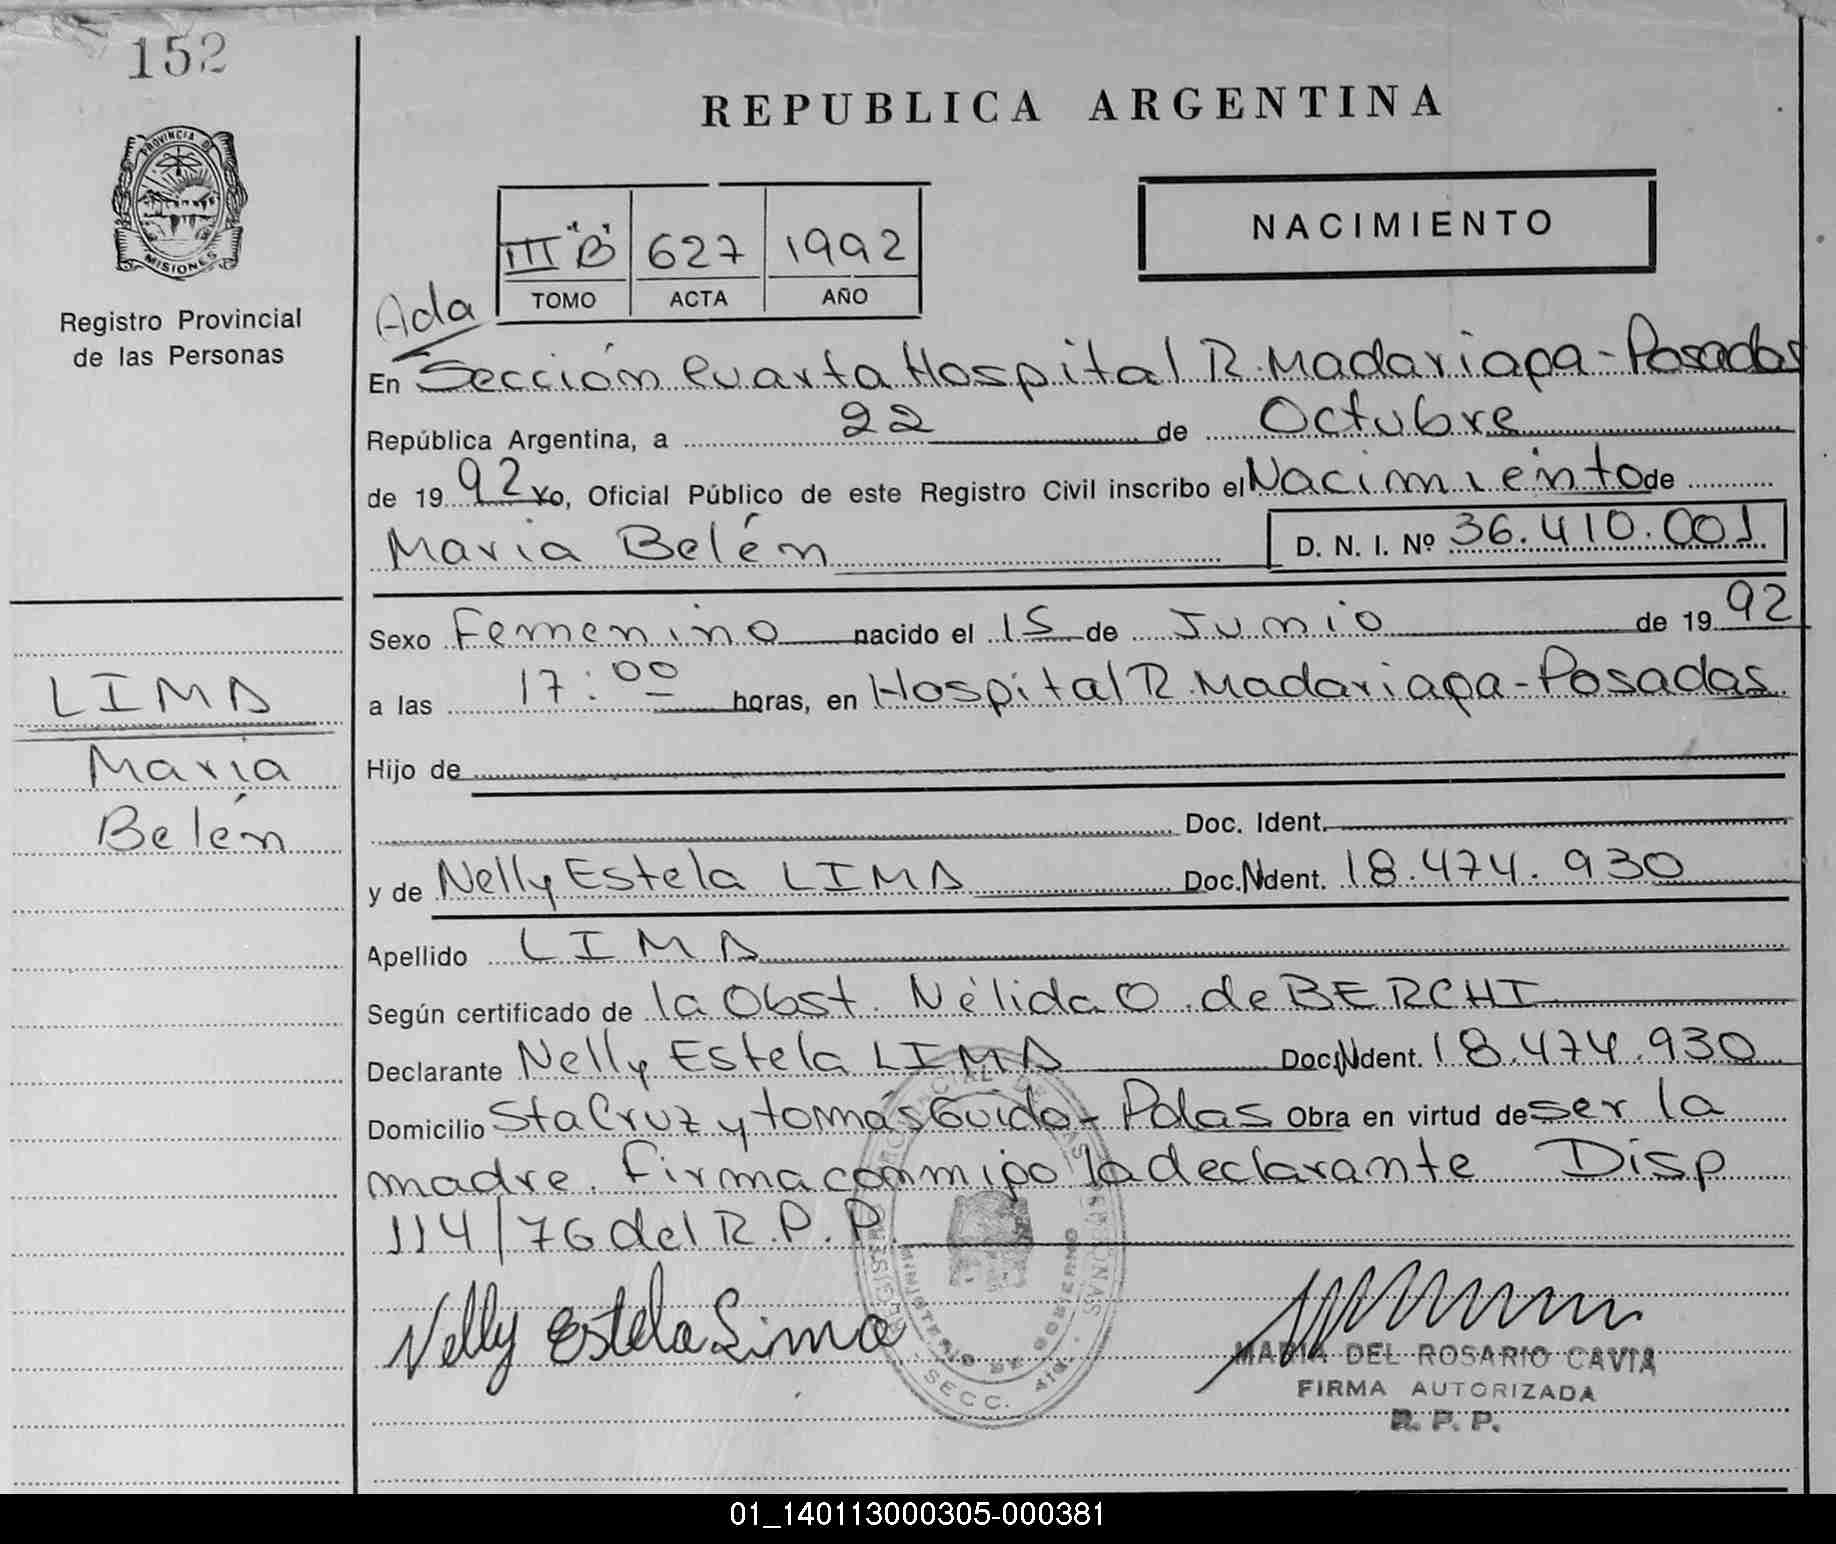 152
PROVINCIA DE
MISIONES
Registro Provincial
de las Personas
REPUBLICA ARGENTINA
III "B" 627 1992
TOMO ACTA AÑO
NACIMIENTO
Ada
En Sección Cuarta Hospital R. Madariaga - Posadas
República Argentina, a 22 de Octubre
de 1992 Yo, Oficial Público de este Registro Civil inscribo el Nacimiento de
Maria Belén D. N. I. Nº 36.410.001
Sexo Femenino nacido el 15 de Junio de 1992
a las 17:00 horas, en Hospital R. Madariaga - Posadas
Hijo de
Doc. Ident.
y de Nelly Estela LIMA Doc. Ndent. 18.474.930
Apellido LIMA
Según certificado de la Obst. Nélida O. de BERCHI
Declarante Nelly Estela LIMA Doc. Ndent. 18.474.930
Domicilio Sta Cruz y tomás Guido - Pdas Obra en virtud de ser la
madre. Firma conmigo la declarante Disp
114/76 del R.P.P.
Nelly Estela Lima
MARIA DEL ROSARIO CAVIA
FIRMA AUTORIZADA
R. P. P.
MINISTERIO DE GOBIERNO
SECC. 4ta
LIMA
Maria
Belén
01_140113000305-000381